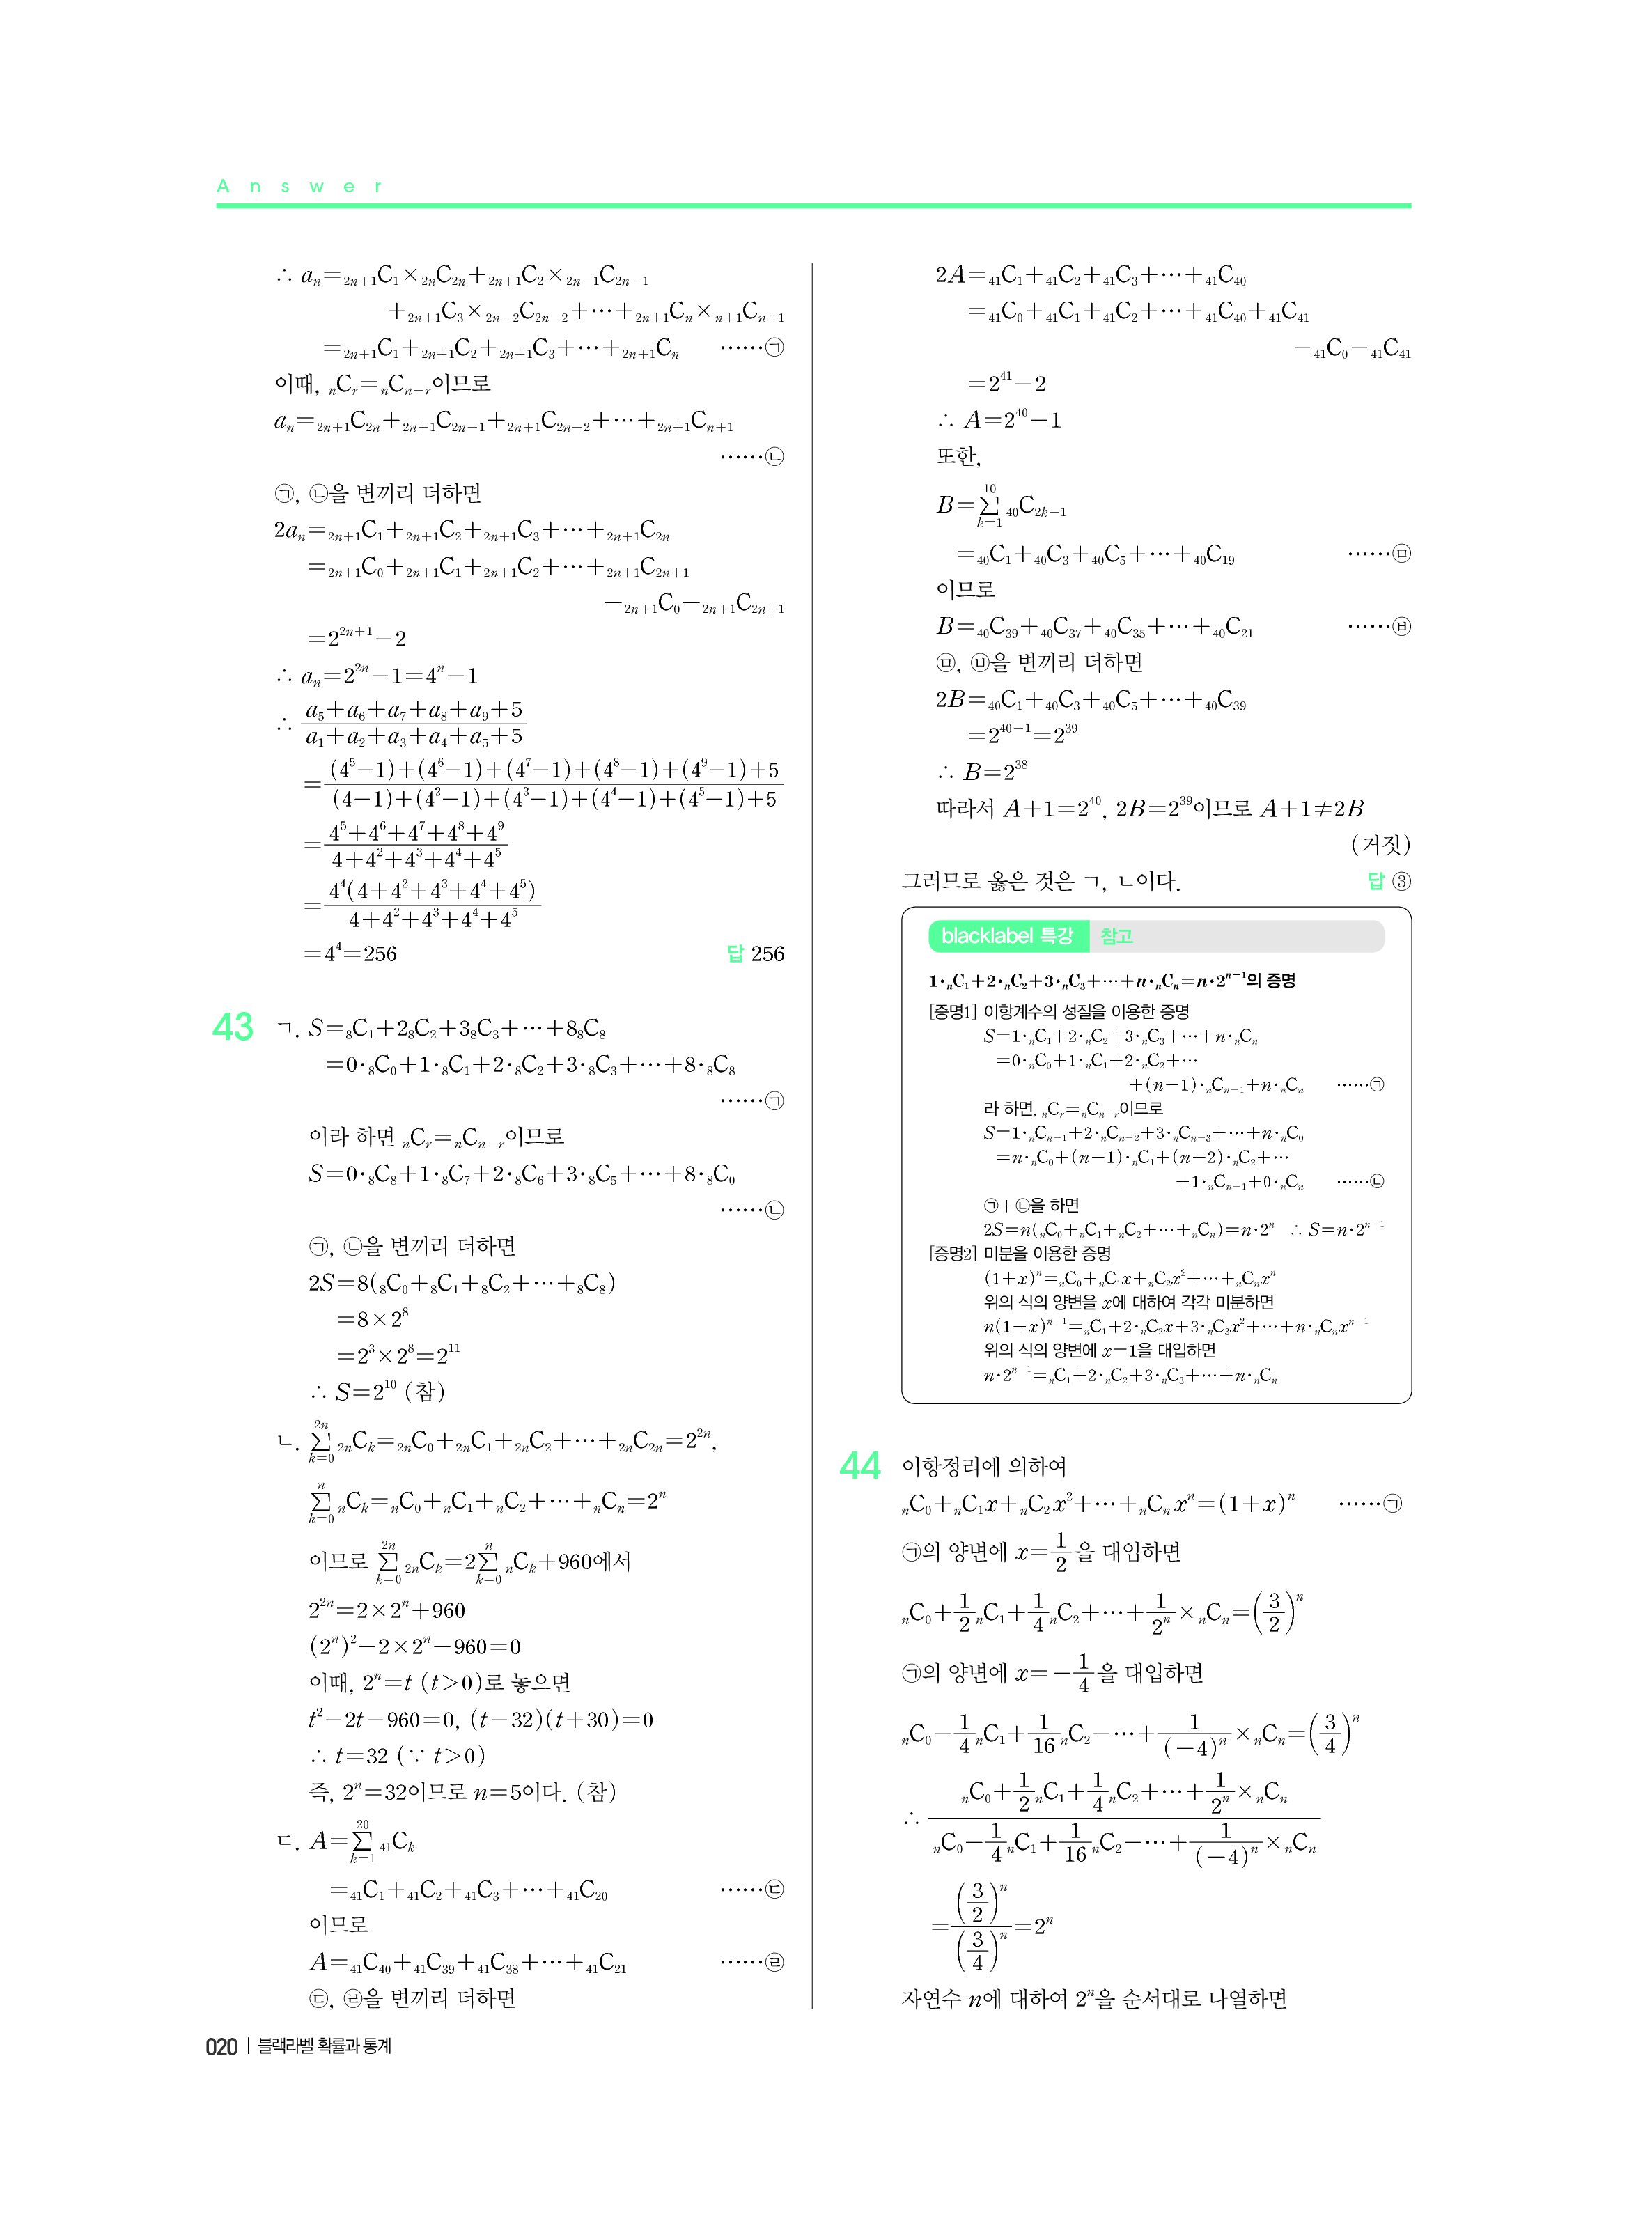 Answer
∴ aₙ=₂ₙ₊₁C₁×₂ₙC₂ₙ+₂ₙ₊₁C₂×₂ₙ₋₁C₂ₙ₋₁
+₂ₙ₊₁C₃×₂ₙ₋₂C₂ₙ₋₂+⋯+₂ₙ₊₁Cₙ×ₙ₊₁Cₙ₊₁
=₂ₙ₊₁C₁+₂ₙ₊₁C₂+₂ₙ₊₁C₃+⋯+₂ₙ₊₁Cₙ ⋯⋯㉠
이때, ₙCᵣ=ₙCₙ₋ᵣ이므로
aₙ=₂ₙ₊₁C₂ₙ+₂ₙ₊₁C₂ₙ₋₁+₂ₙ₊₁C₂ₙ₋₂+⋯+₂ₙ₊₁Cₙ₊₁
⋯⋯㉡
㉠, ㉡을 변끼리 더하면
2aₙ=₂ₙ₊₁C₁+₂ₙ₊₁C₂+₂ₙ₊₁C₃+⋯+₂ₙ₊₁C₂ₙ
=₂ₙ₊₁C₀+₂ₙ₊₁C₁+₂ₙ₊₁C₂+⋯+₂ₙ₊₁C₂ₙ₊₁
−₂ₙ₊₁C₀−₂ₙ₊₁C₂ₙ₊₁
=2²ⁿ⁺¹−2
∴ aₙ=2²ⁿ−1=4ⁿ−1
∴ (a₅+a₆+a₇+a₈+a₉+5)/(a₁+a₂+a₃+a₄+a₅+5)
=((4⁵−1)+(4⁶−1)+(4⁷−1)+(4⁸−1)+(4⁹−1)+5)/((4−1)+(4²−1)+(4³−1)+(4⁴−1)+(4⁵−1)+5)
=(4⁵+4⁶+4⁷+4⁸+4⁹)/(4+4²+4³+4⁴+4⁵)
=4⁴(4+4²+4³+4⁴+4⁵)/(4+4²+4³+4⁴+4⁵)
=4⁴=256 답 256
43 ㄱ. S=₈C₁+2₈C₂+3₈C₃+⋯+8₈C₈
=0·₈C₀+1·₈C₁+2·₈C₂+3·₈C₃+⋯+8·₈C₈
⋯⋯㉠
이라 하면 ₙCᵣ=ₙCₙ₋ᵣ이므로
S=0·₈C₈+1·₈C₇+2·₈C₆+3·₈C₅+⋯+8·₈C₀
⋯⋯㉡
㉠, ㉡을 변끼리 더하면
2S=8(₈C₀+₈C₁+₈C₂+⋯+₈C₈)
=8×2⁸
=2³×2⁸=2¹¹
∴ S=2¹⁰ (참)
ㄴ. ∑(k=0→2n) ₂ₙCₖ=₂ₙC₀+₂ₙC₁+₂ₙC₂+⋯+₂ₙC₂ₙ=2²ⁿ,
∑(k=0→n) ₙCₖ=ₙC₀+ₙC₁+ₙC₂+⋯+ₙCₙ=2ⁿ
이므로 ∑(k=0→2n) ₂ₙCₖ=2∑(k=0→n) ₙCₖ+960에서
2²ⁿ=2×2ⁿ+960
(2ⁿ)²−2×2ⁿ−960=0
이때, 2ⁿ=t (t>0)로 놓으면
t²−2t−960=0, (t−32)(t+30)=0
∴ t=32 (∵ t>0)
즉, 2ⁿ=32이므로 n=5이다. (참)
ㄷ. A=∑(k=1→20) ₄₁Cₖ
=₄₁C₁+₄₁C₂+₄₁C₃+⋯+₄₁C₂₀ ⋯⋯㉢
이므로
A=₄₁C₄₀+₄₁C₃₉+₄₁C₃₈+⋯+₄₁C₂₁ ⋯⋯㉣
㉢, ㉣을 변끼리 더하면
2A=₄₁C₁+₄₁C₂+₄₁C₃+⋯+₄₁C₄₀
=₄₁C₀+₄₁C₁+₄₁C₂+⋯+₄₁C₄₀+₄₁C₄₁
−₄₁C₀−₄₁C₄₁
=2⁴¹−2
∴ A=2⁴⁰−1
또한,
B=∑(k=1→10) ₄₀C₂ₖ₋₁
=₄₀C₁+₄₀C₃+₄₀C₅+⋯+₄₀C₁₉ ⋯⋯㉤
이므로
B=₄₀C₃₉+₄₀C₃₇+₄₀C₃₅+⋯+₄₀C₂₁ ⋯⋯㉥
㉤, ㉥을 변끼리 더하면
2B=₄₀C₁+₄₀C₃+₄₀C₅+⋯+₄₀C₃₉
=2⁴⁰⁻¹=2³⁹
∴ B=2³⁸
따라서 A+1=2⁴⁰, 2B=2³⁹이므로 A+1≠2B
(거짓)
그러므로 옳은 것은 ㄱ, ㄴ이다. 답 ③
blacklabel 특강 참고
1·ₙC₁+2·ₙC₂+3·ₙC₃+⋯+n·ₙCₙ=n·2ⁿ⁻¹의 증명
[증명1] 이항계수의 성질을 이용한 증명
S=1·ₙC₁+2·ₙC₂+3·ₙC₃+⋯+n·ₙCₙ
=0·ₙC₀+1·ₙC₁+2·ₙC₂+⋯
+(n−1)·ₙCₙ₋₁+n·ₙCₙ ⋯⋯㉠
라 하면, ₙCᵣ=ₙCₙ₋ᵣ이므로
S=1·ₙCₙ₋₁+2·ₙCₙ₋₂+3·ₙCₙ₋₃+⋯+n·ₙC₀
=n·ₙC₀+(n−1)·ₙC₁+(n−2)·ₙC₂+⋯
+1·ₙCₙ₋₁+0·ₙCₙ ⋯⋯㉡
㉠+㉡을 하면
2S=n(ₙC₀+ₙC₁+ₙC₂+⋯+ₙCₙ)=n·2ⁿ ∴ S=n·2ⁿ⁻¹
[증명2] 미분을 이용한 증명
(1+x)ⁿ=ₙC₀+ₙC₁x+ₙC₂x²+⋯+ₙCₙxⁿ
위의 식의 양변을 x에 대하여 각각 미분하면
n(1+x)ⁿ⁻¹=ₙC₁+2·ₙC₂x+3·ₙC₃x²+⋯+n·ₙCₙxⁿ⁻¹
위의 식의 양변에 x=1을 대입하면
n·2ⁿ⁻¹=ₙC₁+2·ₙC₂+3·ₙC₃+⋯+n·ₙCₙ
44 이항정리에 의하여
ₙC₀+ₙC₁x+ₙC₂x²+⋯+ₙCₙxⁿ=(1+x)ⁿ ⋯⋯㉠
㉠의 양변에 x=1/2을 대입하면
ₙC₀+1/2 ₙC₁+1/4 ₙC₂+⋯+1/2ⁿ×ₙCₙ=(3/2)ⁿ
㉠의 양변에 x=−1/4을 대입하면
ₙC₀−1/4 ₙC₁+1/16 ₙC₂−⋯+1/(−4)ⁿ×ₙCₙ=(3/4)ⁿ
∴ (ₙC₀+1/2 ₙC₁+1/4 ₙC₂+⋯+1/2ⁿ×ₙCₙ)/(ₙC₀−1/4 ₙC₁+1/16 ₙC₂−⋯+1/(−4)ⁿ×ₙCₙ)
=(3/2)ⁿ/(3/4)ⁿ=2ⁿ
자연수 n에 대하여 2ⁿ을 순서대로 나열하면
020 | 블랙라벨 확률과 통계